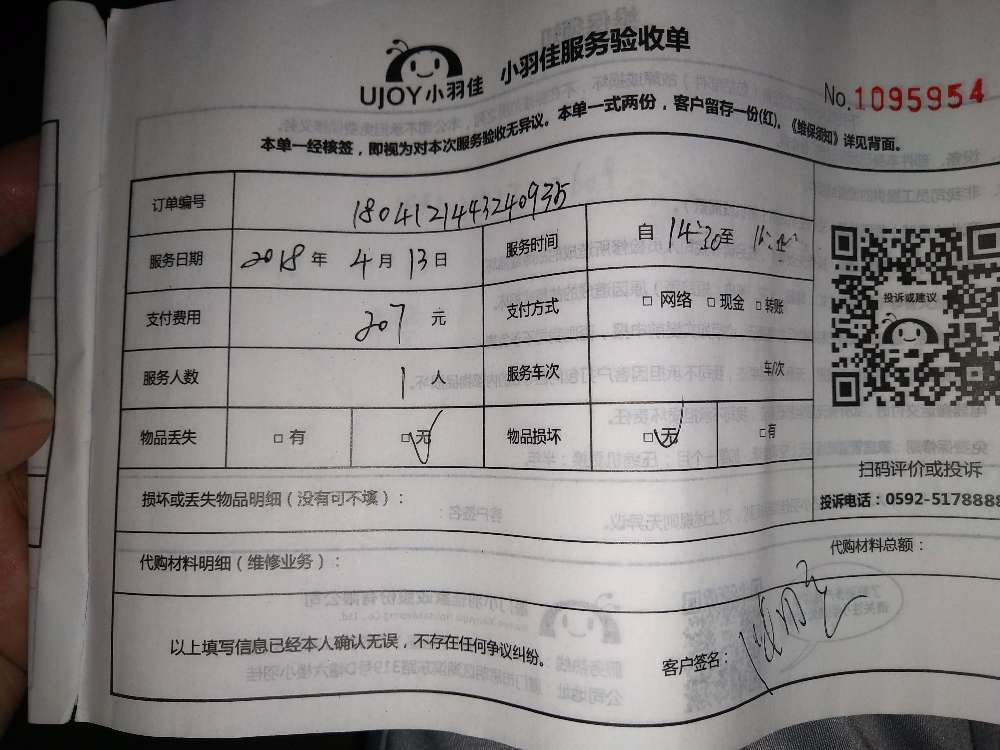 UJOY小羽佳 小羽佳服务验收单
No.1095954
本单一经核签，即视为对本次服务验收无异议。本单一式两份，客户留存一份(红)。《维保须知》详见背面。
订单编号 1804121443240935
服务日期 2018 年 4 月 13 日 服务时间 自 14:30 至
支付费用 207 元 支付方式 □ 网络 □ 现金 □ 转账
投诉或建议
服务人数 1 人 服务车次 车/次
物品丢失 □ 有 □ 无 物品损坏 □ 无 □ 有
扫码评价或投诉
投诉电话：0592-5178888
损坏或丢失物品明细（没有可不填）：
代购材料明细（维修业务）： 代购材料总额：
以上填写信息已经本人确认无误，不存在任何争议纠纷。 客户签名：